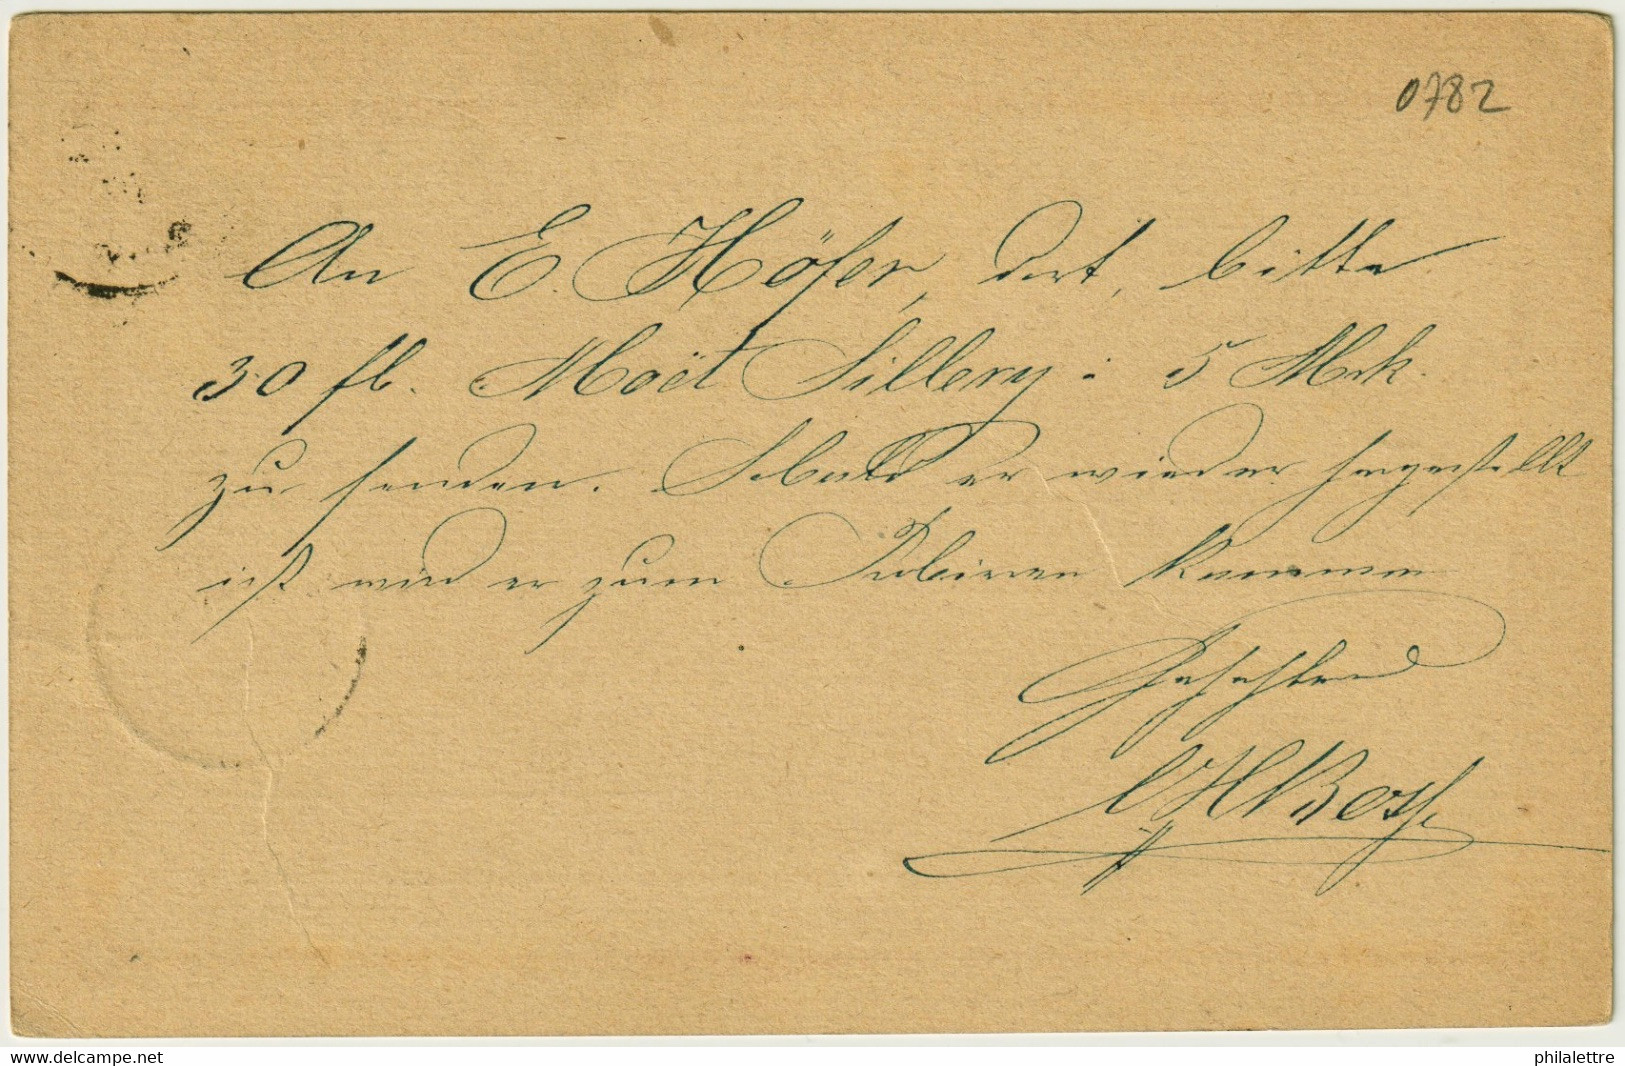 0782
An E. Höfer, dort, bitte
30 fl. Moët Sillery : 5 Mrk.
zu senden. Sobald er wieder hergestellt
ist wird er zum Probieren kommen
www.delcampe.net
philalettre